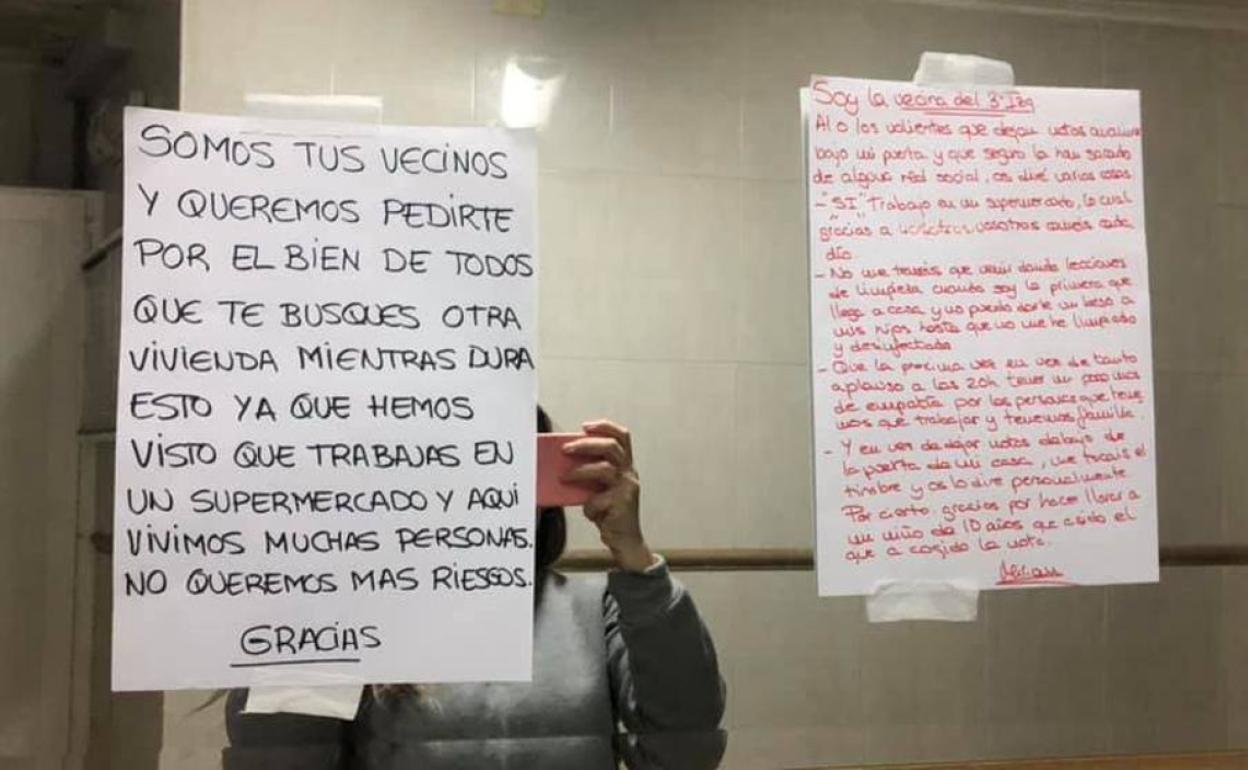 SOMOS TUS VECINOS
Y QUEREMOS PEDIRTE
POR EL BIEN DE TODOS
QUE TE BUSQUES OTRA
VIVIENDA MIENTRAS DURA
ESTO YA QUE HEMOS
VISTO QUE TRABAJAS EN
UN SUPERMERCADO Y AQUI
VIVIMOS MUCHAS PERSONAS.
NO QUEREMOS MAS RIESGOS.
GRACIAS
Soy la vecina del 3º Izq
Al o los valientes que dejan notas
bajo mi puerta y que seguro la han sacado
de alguna red social, os diré varias cosas
- "SI" Trabajo en un supermercado, lo cual
gracias a vosotros coméis cada
día.
- No me tenéis que venir dando lecciones
de limpieza cuando soy la primera que
llega a casa y no puedo darle un beso a
mis hijos hasta que no me he limpiado
y desinfectado
- Que la proxima vez en vez de tanto
aplauso a las 20h tener un poco mas
de empatía por las personas que tene
mos que trabajar y tenemos familia.
- Y en vez de dejar notas debajo de
la puerta de mi casa, me tocais el
timbre y os lo dire personalmente.
Por cierto gracias por hacer llorar a
un niño de 10 años que a sido el
que a cogido la nota.
Miriam